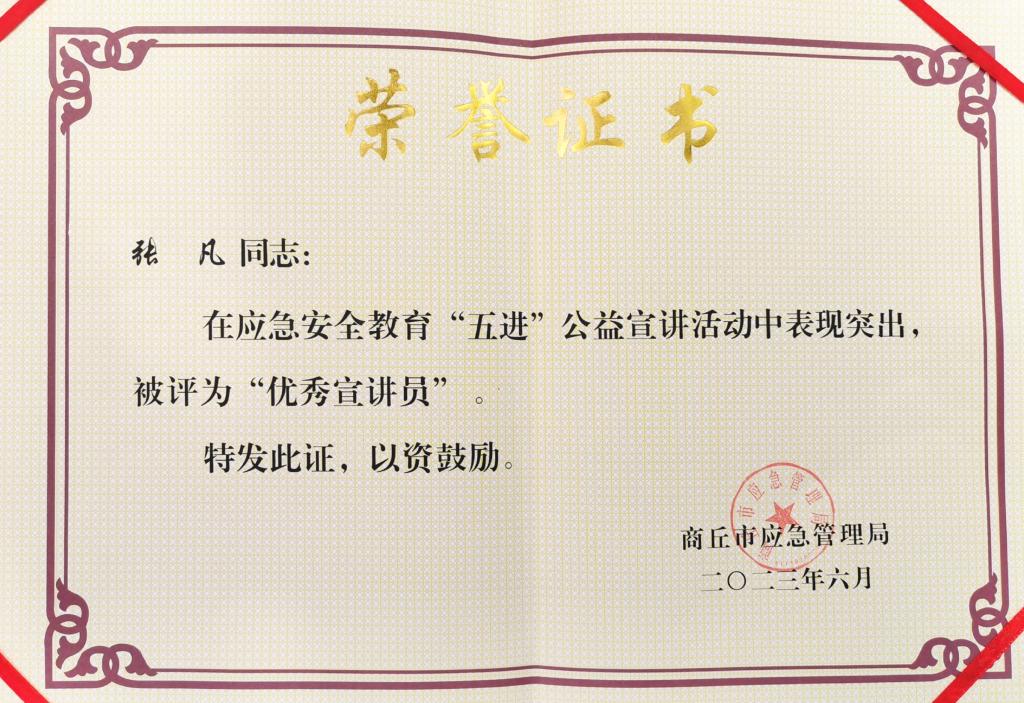 荣誉证书
张 凡 同志：
在应急安全教育“五进”公益宣讲活动中表现突出，
被评为“优秀宣讲员” 。
特发此证，以资鼓励。
市应急管理局
商丘市应急管理局
二〇二三年六月